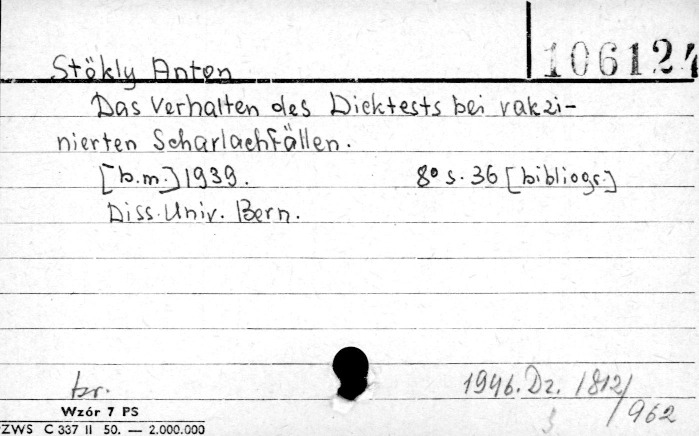 106124
Stökly Anton
Das Verhalten des Dicktests bei vakzi-
nierten Scharlachfällen.
[b.m.] 1939. 8° s. 36 [bibliogr.]
Diss. Univ. Bern.
br. 1946. Dz. 1812/
/962
Wzór 7 PS
ZWS C 337 II 50. — 2.000.000